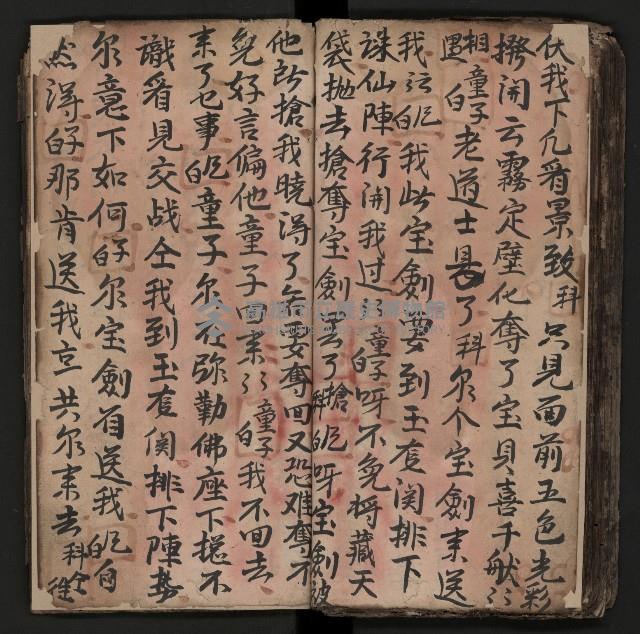 伏我下凡看景致科只見面前五色光彩
撥開云霧定壁化奪了宝貝喜千般〻
相遇童子白老道士具了科尔个宝劍来送
我〻呢白我此宝劍要到玉虎関排下
誅仙陣行開我过童子白呀不免将藏天
袋拋去搶奪宝劍去了搶科呢白呀宝劍被
他所搶我曉得了去要奪回又恐难奪不
免好言偏他童子来〻童子白我不回去
来了乜事呢白童子尔在弥勤佛座下擾不
識看見交战仝我到玉虎関排下陣势
尔意下如何子白尔宝劍肯送我呢白自
然得子白那肯送我立共尔来去科仝徃
高雄市立歷史博物館